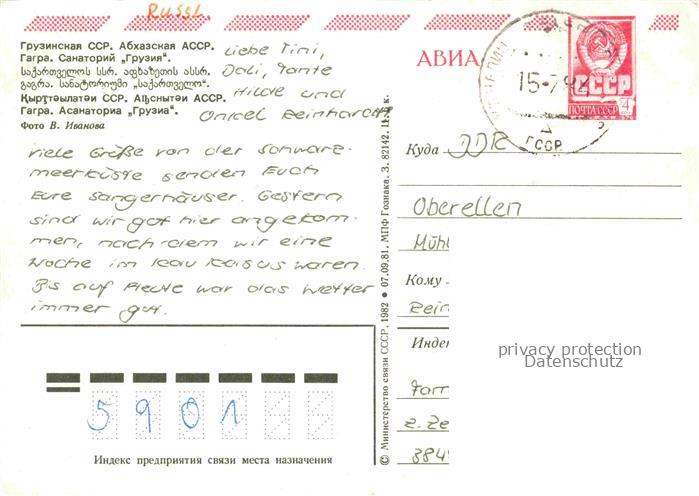 Russl.
Грузинская ССР. Абхазская АССР.
Гагра. Санаторий „Грузия“.
საქართველოს სსრ. აფხაზეთის ასსრ.
გაგრა. სანატორიუმი „საქართველო“.
Қырҭтәылатәи ССР. Аҧснытәи АССР.
Гагра. Асанаториа „Грузиа“.
Фото В. Иванова
Liebe Tini,
Doli, Tante
Hilde und
Onkel Reinhardt
viele Grüße von der Schwarz-
meerküste senden Euch
Eure Sangerhäuser. Gestern
sind wir gut hier angekom-
men, nach dem wir eine
Woche im Kaukasus waren.
Bis auf Heute war das Wetter
immer gut.
5901
Индекс предприятия связи места назначения
© Министерство связи СССР, 1982 ● 07.09.81. МПФ Гознака. З. 82142. Ц. 4 к.
АВИА
СССР
ПОЧТА СССР 4
15-7
ГССР
Куда DDR
Oberellen
Mühl
Кому
Rein
Индек
Fam
z. Ze
384
privacy protection
Datenschutz